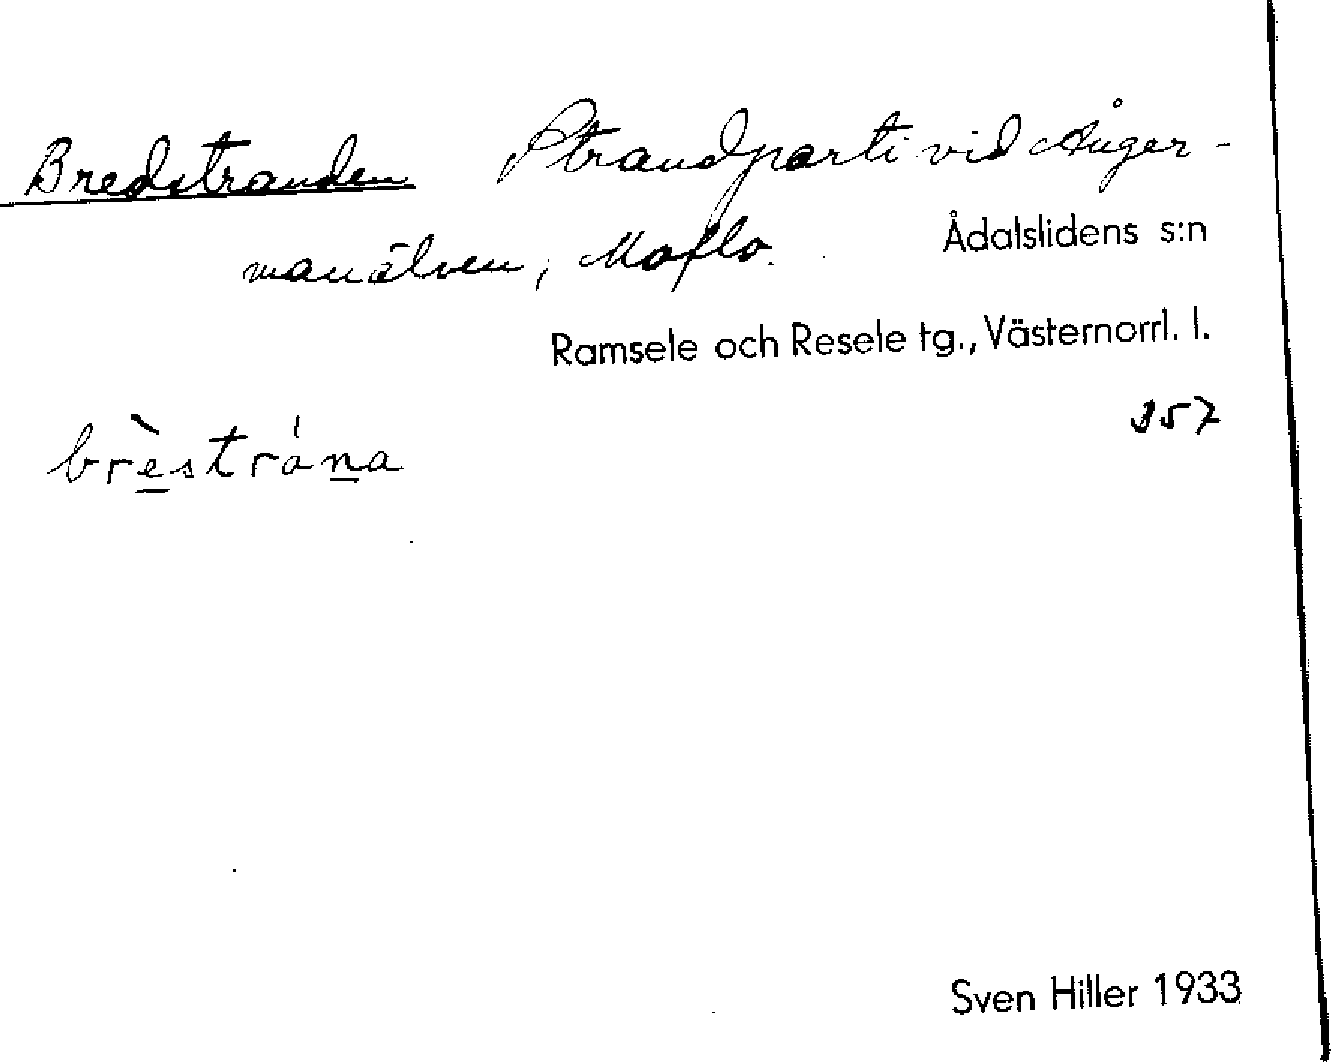 Bredstranden Strandparti vid Ånger-
manälven, Moflo.
Ådalslidens s:n
Ramsele och Resele tg., Västernorrl. l.
357
brèstrána
Sven Hiller 1933